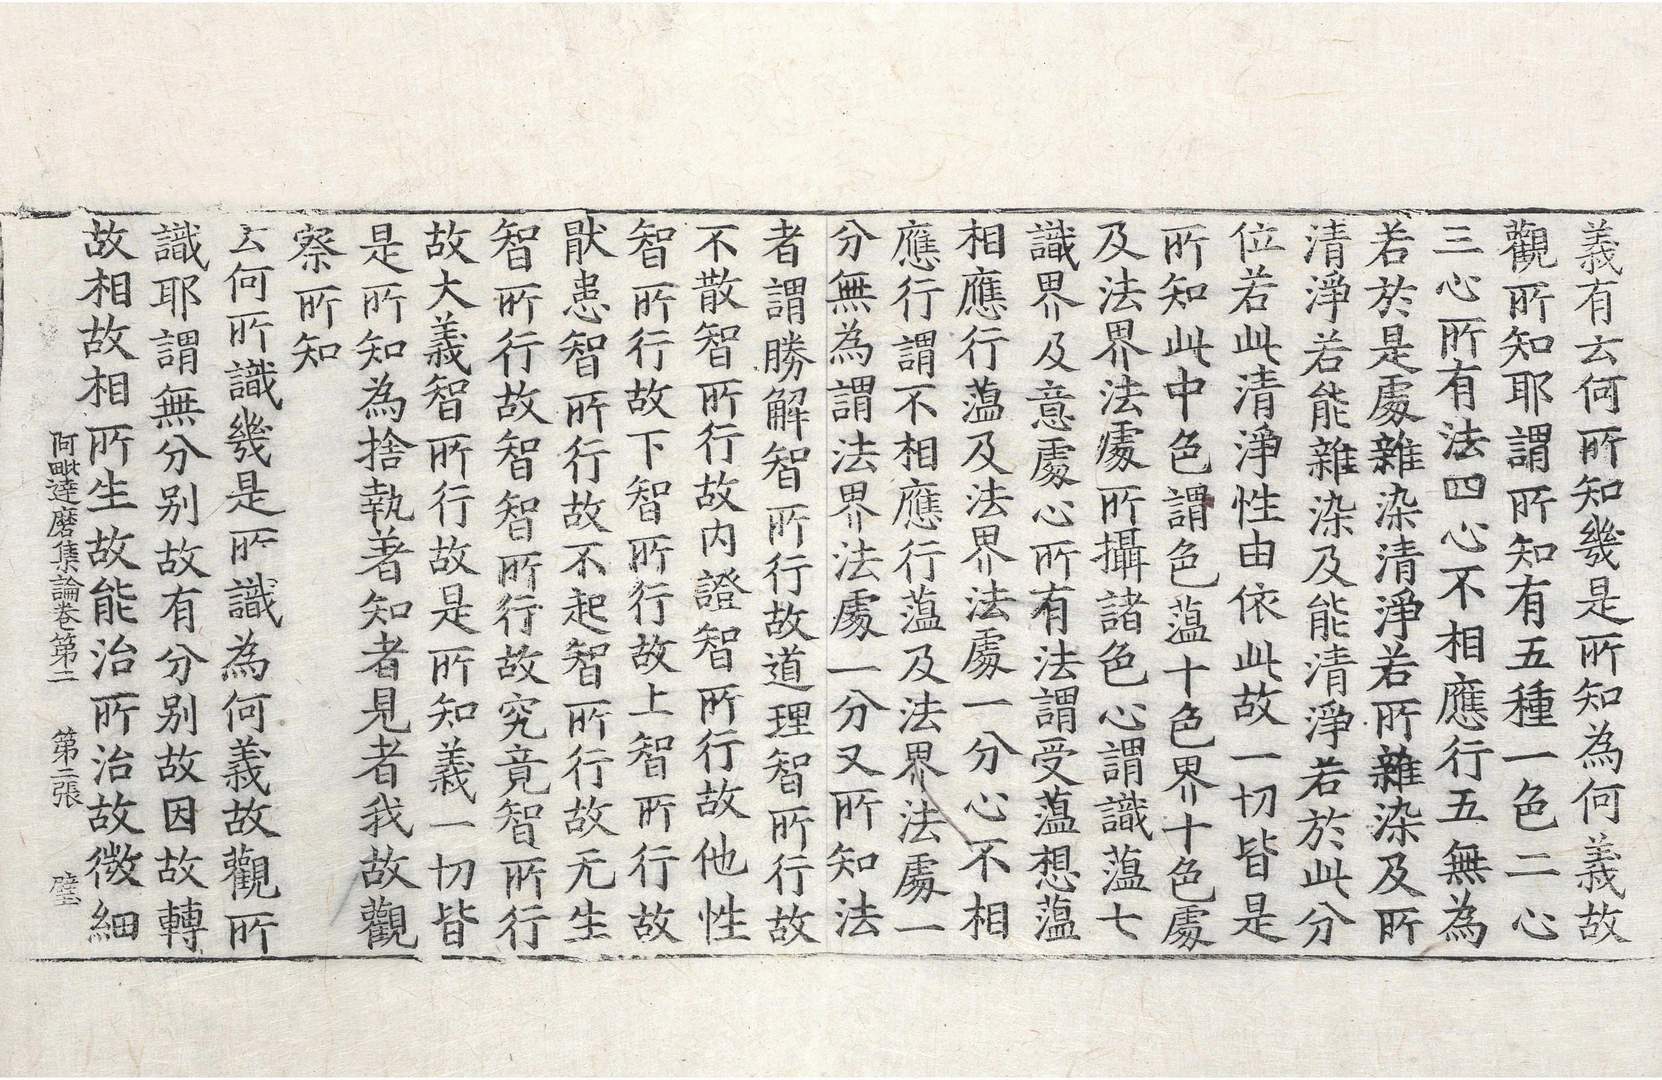 義有云何所知幾是所知為何義故
觀所知耶謂所知有五種一色二心
三心所有法四心不相應行五無為
若於是處雜染清淨若所雜染及所
清淨若能雜染及能清淨若於此分
位若此清淨性由依此故一切皆是
所知此中色謂色蘊十色界十色處
及法界法處所攝諸色心謂識蘊七
識界及意處心所有法謂受蘊想蘊
相應行蘊及法界法處一分心不相
應行謂不相應行蘊及法界法處一
分無為謂法界法處一分又所知法
者謂勝解智所行故道理智所行故
不散智所行故內證智所行故他性
智所行故下智所行故上智所行故
猒患智所行故不起智所行故无生
智所行故智智所行故究竟智所行
故大義智所行故是所知義一切皆
是所知為捨執著知者見者我故觀
察所知
云何所識幾是所識為何義故觀所
識耶謂無分別故有分別故因故轉
故相故相所生故能治所治故微細
阿毗達磨集論卷第二　第二張　璧